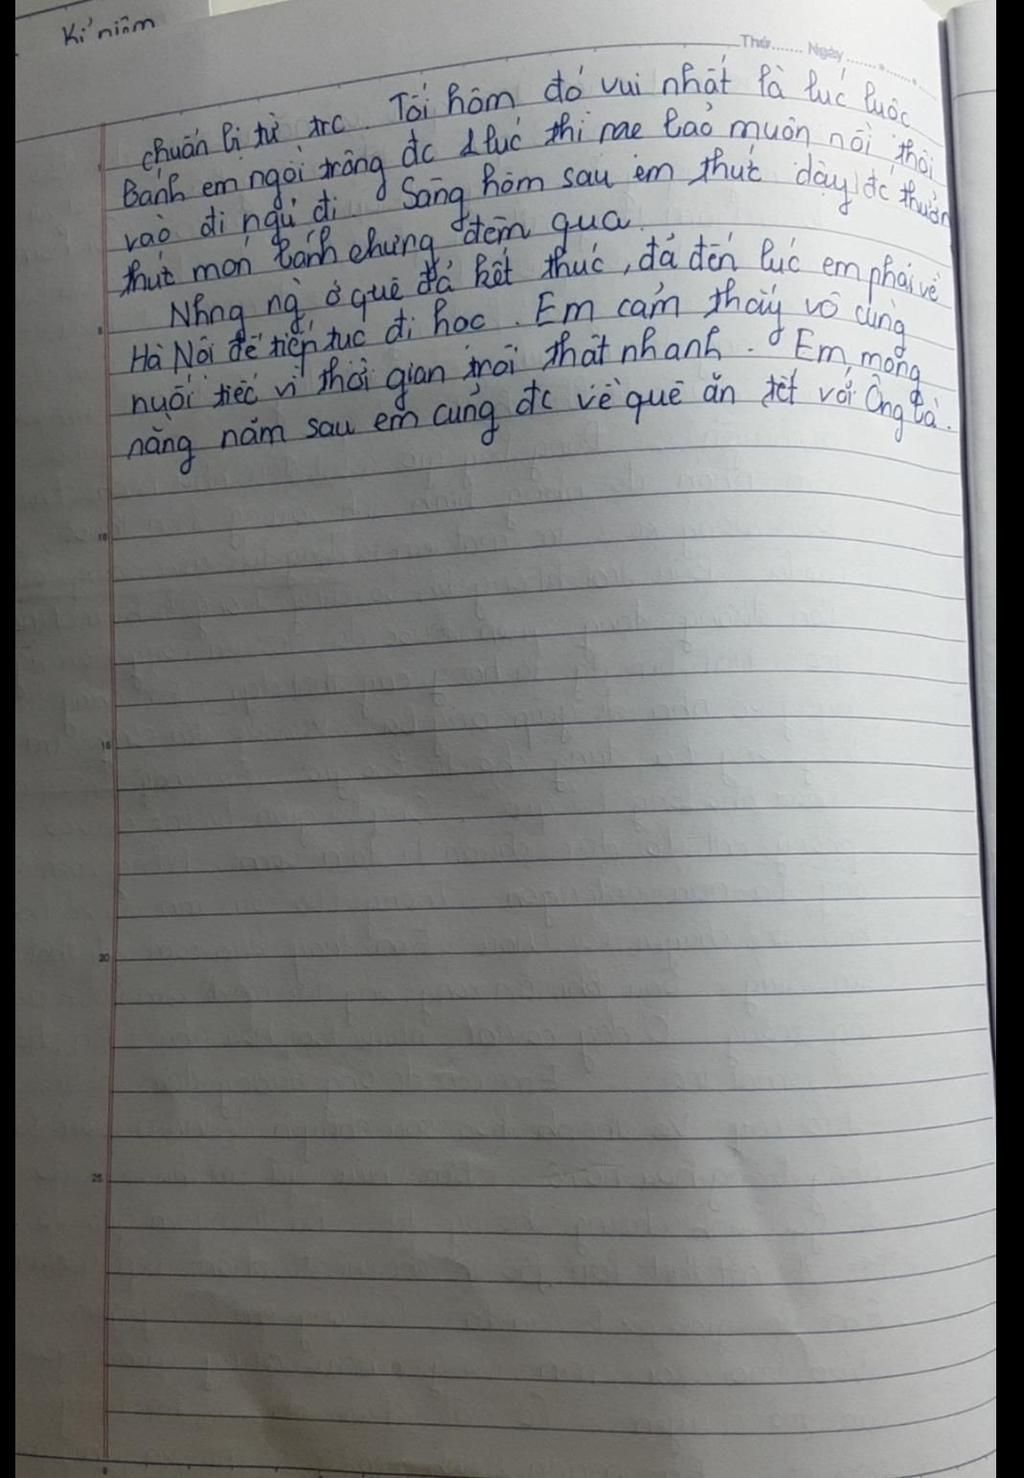 Kỉ niệm
Thứ....... Ngày.......
chuẩn bị từ trc. Tối hôm đó vui nhất là lúc luộc
Bánh em ngồi trông đc 1 lúc thì mẹ bảo muộn rồi thôi
vào đi ngủ đi. Sáng hôm sau em thức dậy, đc thưởn
thức món bánh chưng đêm qua.
Nhng ng ở quê đã kết thúc, đã đến lúc em phải về
Hà Nội để tiếp tục đi học. Em cảm thấy vô cùng
nuối tiếc vì thời gian trôi thật nhanh. Em mong
rằng năm sau em cũng đc về quê ăn tết với Ông bà.
5
10
15
20
25